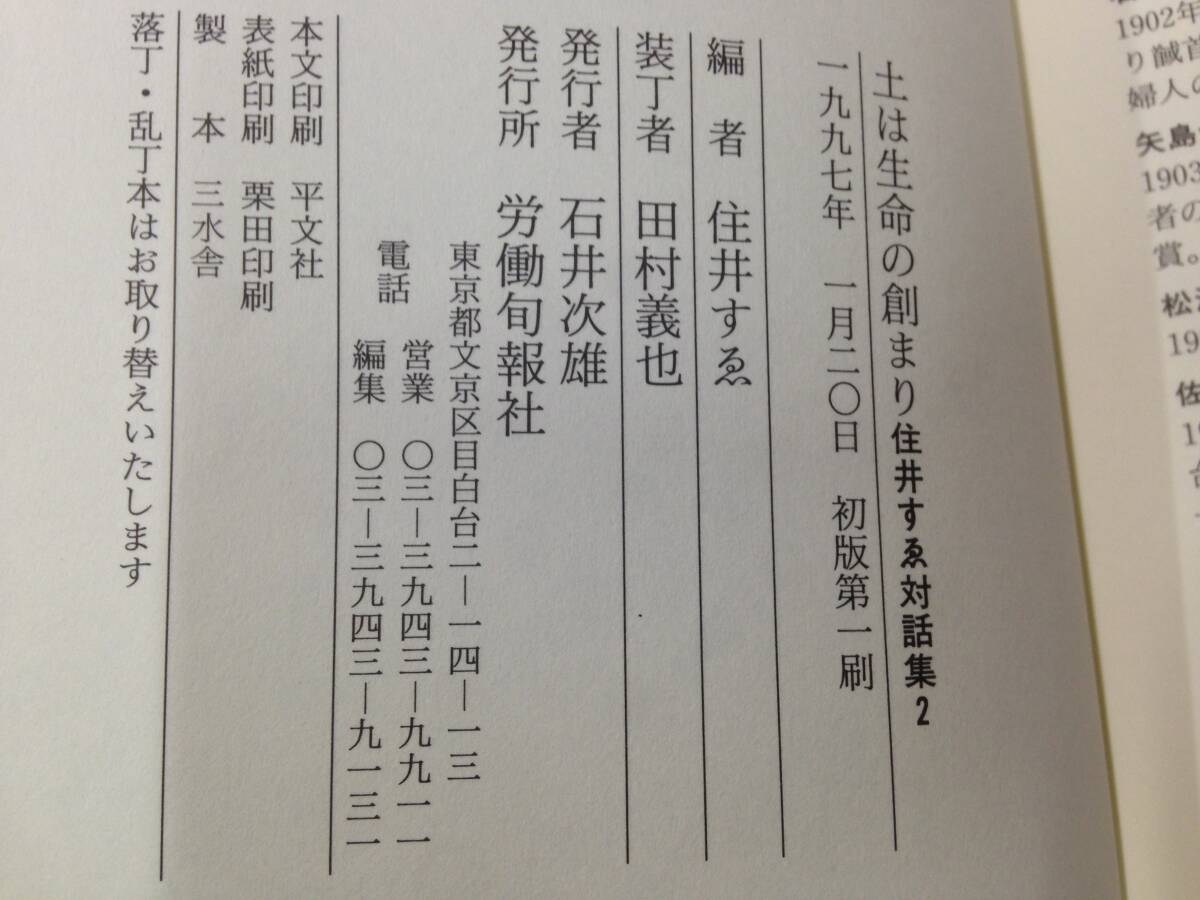 土は生命の創まり 住井すゑ対話集2
一九九七年 一月二〇日 初版第一刷
編者 住井すゑ
装丁者 田村義也
発行者 石井次雄
発行所 労働旬報社
東京都文京区目白台二―一四―一三
電話 営業 〇三―三九四三―九九一一
編集 〇三―三九四三―九一三一
本文印刷 平文社
表紙印刷 栗田印刷
製本 三水舎
落丁・乱丁本はお取り替えいたします
1902年
り馘首
婦人の
矢島
1903
者の
賞。
松
19
佐